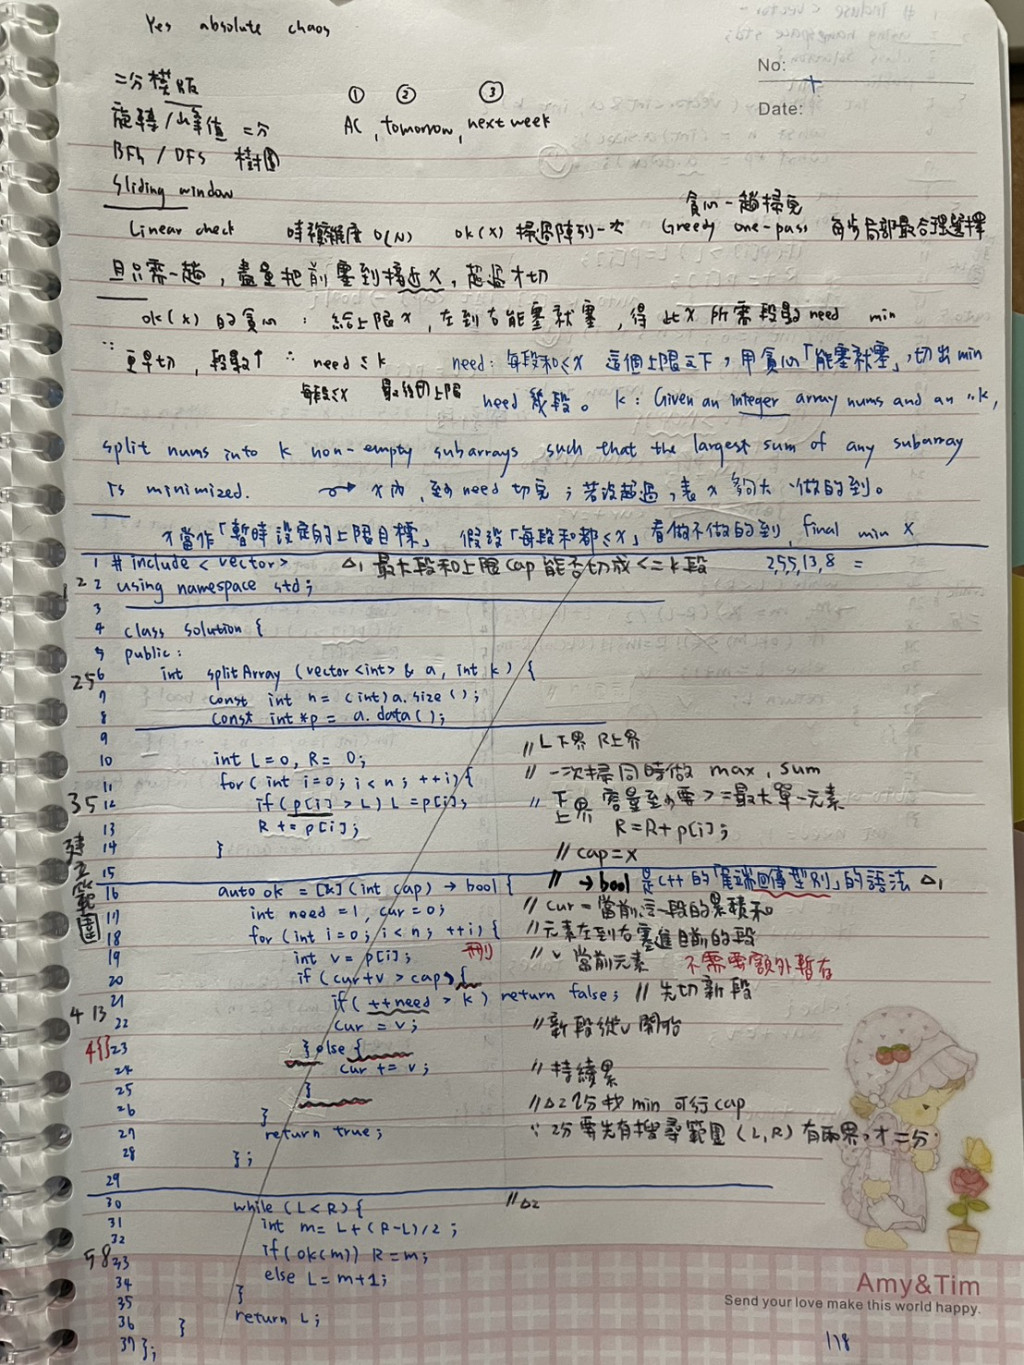 Yes absolute chaos
No:
二分模版
① ② ③
Date:
旋轉/峰值 二分
AC, tomorrow, next week
BFS / DFS 樹圖
Sliding window
貪心一趟掃完
Linear check 時間複雜度 O(N) ok(x) 掃過陣列一次 Greedy one-pass 每步局部最合理選擇
且只需一趟, 盡量把前塞到接近x, 超過才切
ok(x) 的貪心 : 給上限x, 左到右能塞就塞, 得此x所需段數need min
∵ 更早切, 段數↑ ∴ need ≤ k need: 每段和≤x 這個上限之下, 用貪心「能塞就塞」, 切出min
每段≤x 最後的上限 need 幾段。 k: Given an integer array nums and an "k,
split nums into k non-empty subarrays such that the largest sum of any subarray
is minimized. → x內, 至少need切完; 若沒超過, 表x夠大 做的到。
x當作「暫時設定的上限目標」 假設「每段和都≤x」看做不做的到, final min x
1 #include <vector> △1 最大段和上限cap能否切成<=k段 2,5,5,13,8 =
12 2 using namespace std;
3
4 class Solution {
5 public:
25 6 int splitArray (vector<int> & a, int k) {
7 const int n = (int)a.size();
8 const int *p = a.data();
9
10 int L=0, R= 0; //L下界 R上界
11 for( int i=0; i<n; ++i){ //一次掃同時做 max, sum
35 12 if(p[i] > L) L = p[i]; //下界 容量至少要>=最大單一元素
13 R += p[i]; 上界 R=R+p[i];
14 }
15 // cap=x
建立範圍
16 auto ok = [&](int cap) -> bool { // →bool 是C++的「尾端回傳型別」的語法 △1
17 int need =1, cur=0; //cur=當前這一段的累積和
18 for (int i=0; i<n; ++i) { //元素左到右塞進目前的段
19 int v = p[i]; 刪 //v 當前元素 不需要額外暫存
20 if (cur+v > cap) {
21 if( ++need > k) return false; // 先切新段
4 13
22 cur = v; //新段從v開始
4{} 23 } else {
24 cur += v; //持續累
25 }
26 } //△2 2分找 min 可行cap
27 return true; ∵ 2分要先有搜尋範圍 (L,R) 有兩界, 才二分.
28 };
29
30 while (L<R){ //△2
31 int m= L+(R-L)/2;
32
58 33 if(ok(m)) R=m;
34 else L=m+1;
35 }
return L;
36 }
37 };
Amy&Tim
Send your love make this world happy.
118